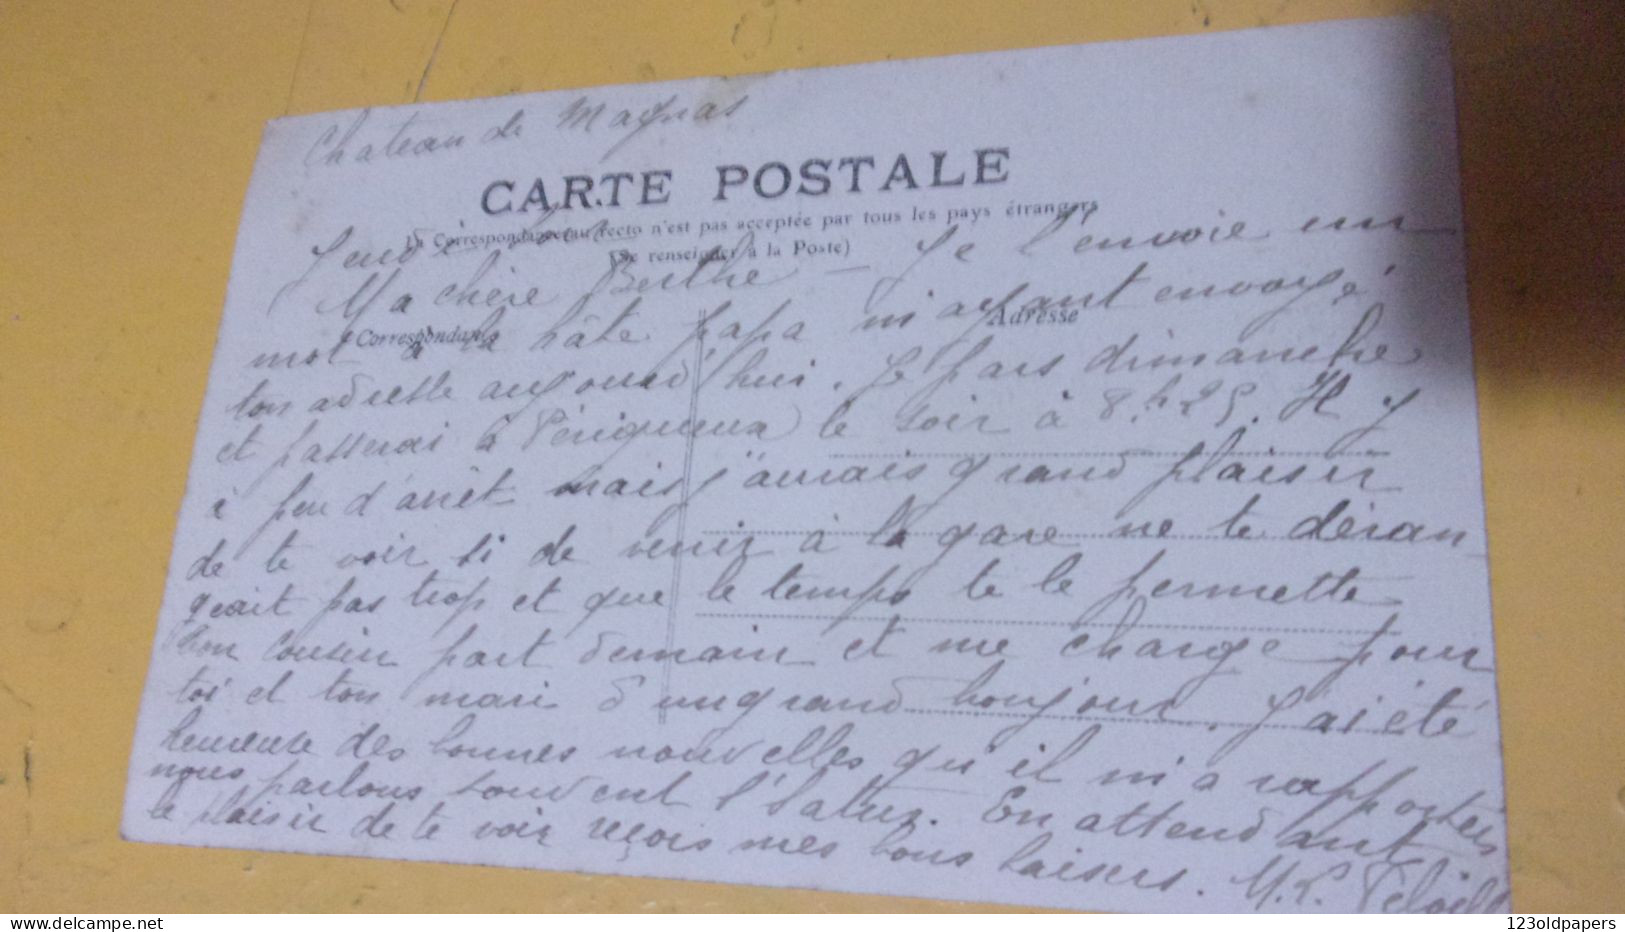 Chateau de Magnas
CARTE POSTALE
La Correspondance au recto n'est pas acceptée par tous les pays étrangers
(Se renseigner à la Poste)
Jeudi soir
Ma chère Berthe — Je t'envoie un
Correspondance
Adresse
mot à la hâte papa m'ayant envoyé
ton adresse aujourd'hui. Je pars dimanche
et passerai à Périgueux le soir à 8h25. Il y
a peu d'arrêt mais j'aurais grand plaisir
de te voir si de venir à la gare ne te déran
geait pas trop et que le temps te le permette
Ton cousin part demain et me charge pour
toi et ton mari d'un grand bonjour. J'ai été
heureuse des bonnes nouvelles qu'il m'a rapportées
nous parlons souvent En attendant
le plaisir de te voir reçois mes bons baisers. M.L.
123oldpapers